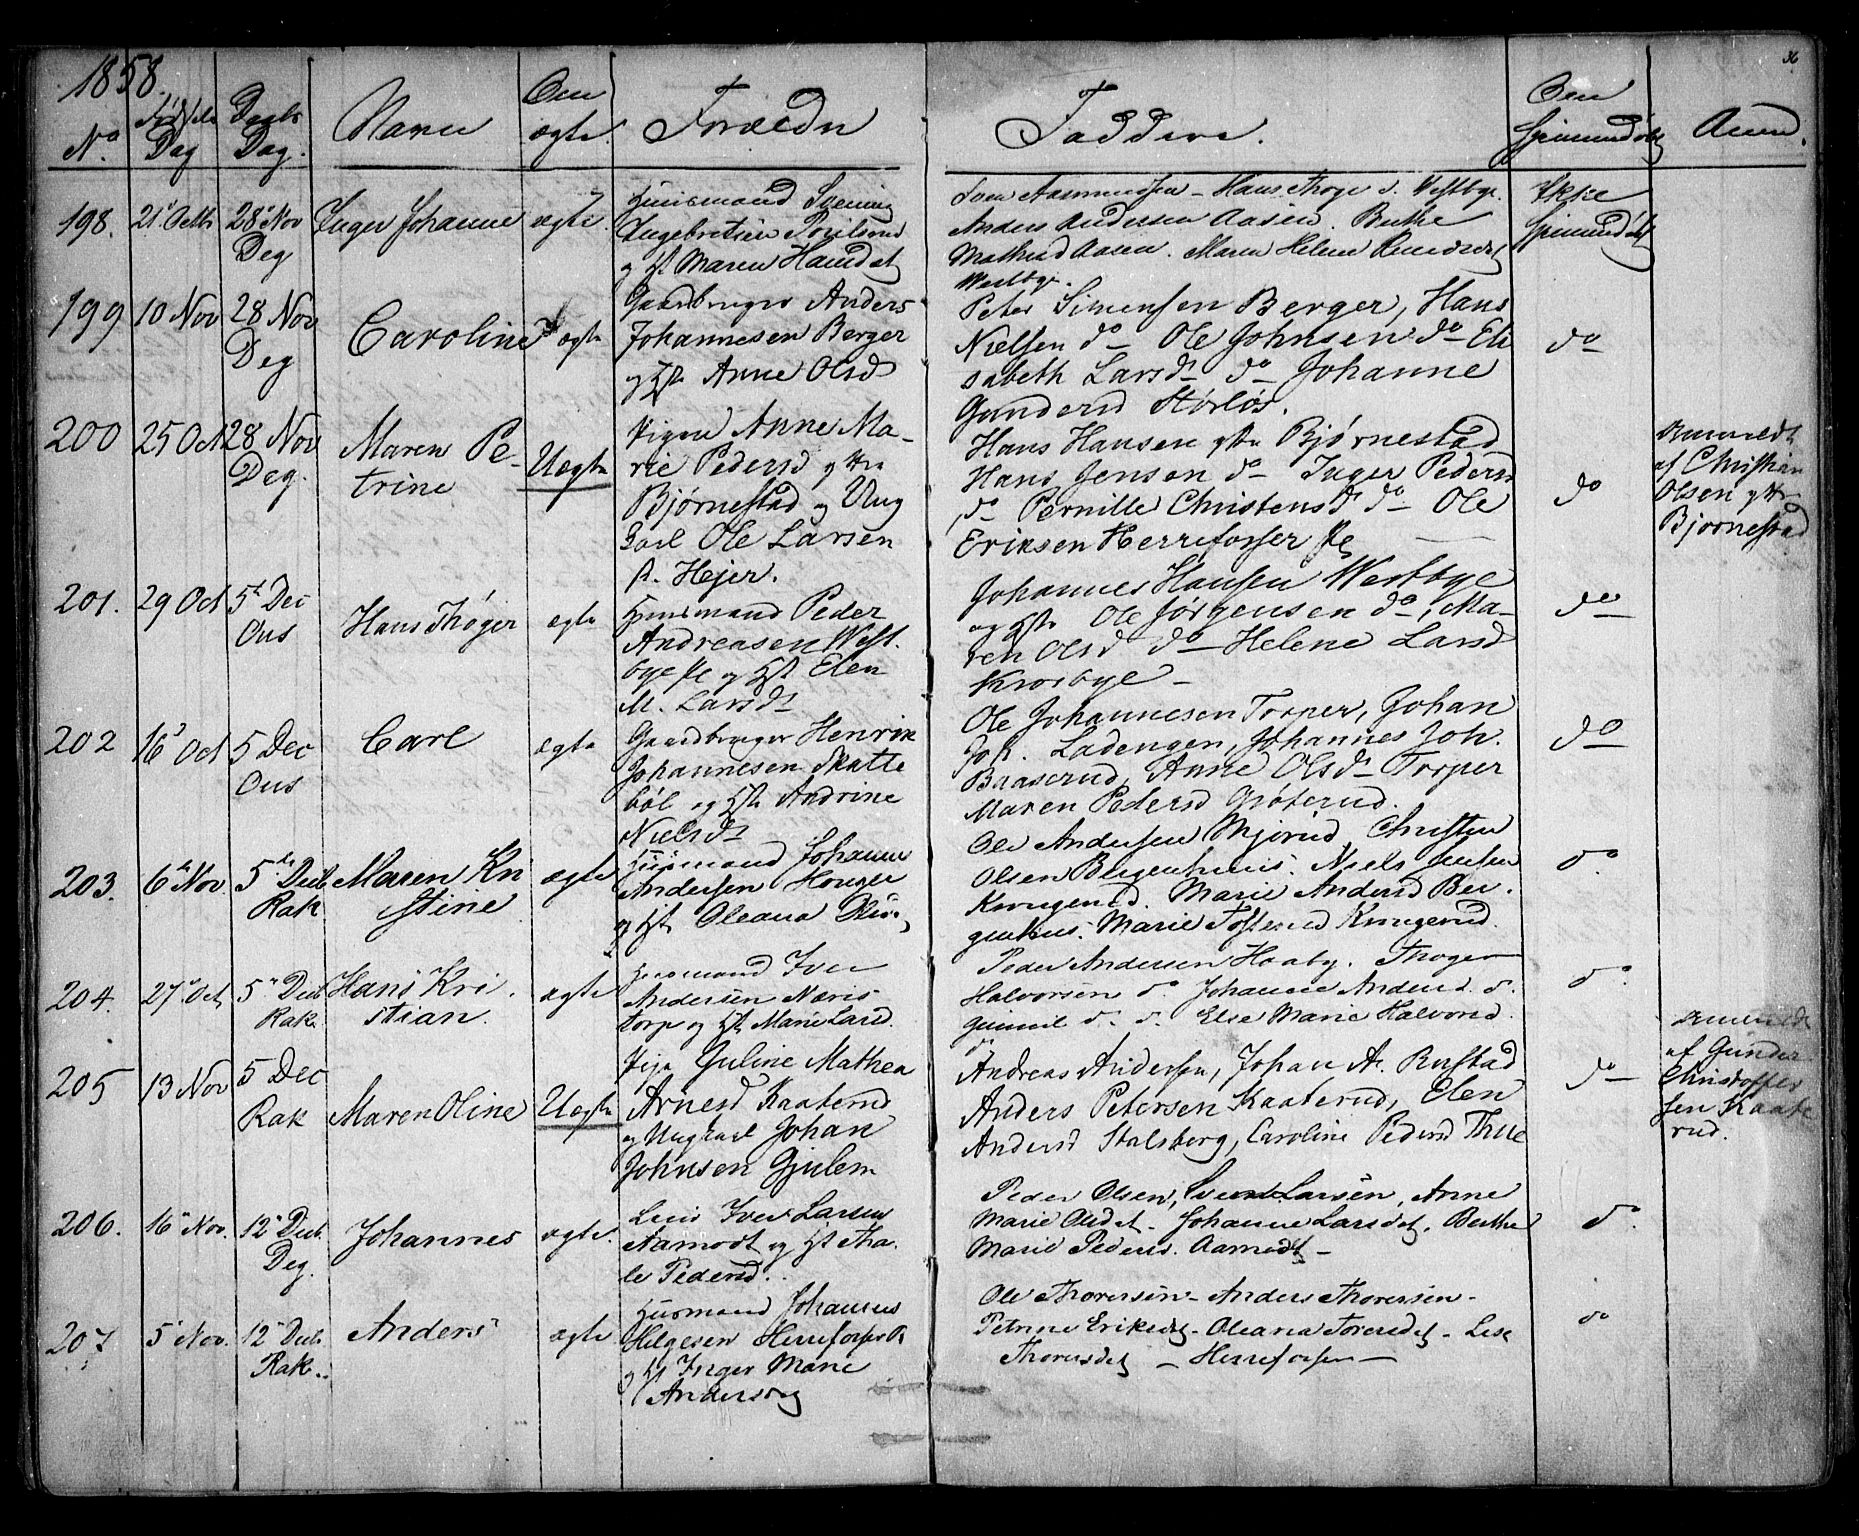 1858.
36
No Fødsels Dag Daabs Dag. Navn Om ægte. Forældre Faddere. Om Anm.
198. 21 Octb 28 Nov Deg Inger Johanne ægte.
Huusmand Svening
Ingebretsen
og H. Maren Hansdat
Sven Aasmundsen - Hans Thoge d. Vestbye.
Anders Andersen Aasen. Berthe
Mathisd Aasen. Maren Helene
Westbye.
Ikke
199 10 Nov 28 Nov Deg Caroline ægte
Gaardbruger Anders
Johannesen Berger
og Hst Anne Olsd
Peter Simensen Berger, Hans
Nielsen do Ole Johnsen do Eli
sabeth Larsd do Johanne
Gundersd Størløs.
do
200 25 Oct 28 Nov Deg. Maren Pe-
trine Uægte
Pigen Anne Ma-
rie Pedersd
Bjørnestad og Ung
Carl Ole Larsen
p. Hejer.
Hans Hansen Bjørnestad
Hans Jensen do Inger Pedersd
do Pernille Christensd do Ole
Eriksen Herrefosser
do
Anmeldt
af Christian
Olsen
Bjørnestad
201. 29 Oct 5 Dec Ous Hans Thøger ægte
Huusmand Peder
Andreasen West-
bye og Hst Elen
M. Larsd
Johannes Hansen Westbye
og Hst Ole Jørgensen do, Ma-
ren Olsd do Helene Larsd
Krosbye -
do
202 16 Oct 5 Dec Ous Carl ægte
Gaardbruger Henrik
Johannesen Skatte
bøl og Hst Andrine
Nielsd
Ole Johannesen Torper, Johan
Joh. Ladengen, Johannes Joh.
Baaserud, Anne Olsd Torper
Maren Pedersd Grøterud.
do
203. 6 Nov 5 Decb Rak Maren Kri
stine ægte
Huusmand Johannes
Andersen
og Hst Oleana
Ole Andersen Mjørud Christen
Olsen Bergenhuus. Niels Jensen
Krungerud. Marie Andersd Ber-
genhus. Marie Krungerud.
do
204. 27 Oct 5 Decb Rak Hans Kri
stian. ægte
Huusmand Iver
Andersen Næris
torp og Hst Marie Larsd.
Peder Andersen Haaby. Thoger
Halvorsen do. Johanne Andersd. d.
d. d. Else Marie Halvorsd.
do
do.
205 13 Nov 5 Dec Rak Maren Oline Uægte
Pige Guline Mathea
Arnesd Kaaterud
og Ungkarl Johan
Johnsen Gjulem
Andreas Andersen, Johan A. Rustad
Anders Petersen Kaaterud, Elen
Andersd Stalsberg, Caroline Pedersd Thue
do
Anmeldt
af Gunder
Christoffer
sen Kaate
rud.
206. 16 Nov. 12 Decb. Deg. Johannes ægte.
Iver Larsen
Aamodt og Hst Tha-
le Pedersd.
Peder Olsen, Svend Larsen, Anne
Marie Olsdat - Johanne Larsdat. Berthe
Marie Peders. Aamodt -
do.
207 5 Nov. 12 Decb. Rak. Anders ægte
Huusmand Johannes
Helgesen Herrefosser
og Hst Inger Marie
Andersdat
Ole Thoresen - Anders Thoresen -
Petrine Eriksdat - Oleana Toresdat - Lise
Thoresdat - Herrefossen -
do